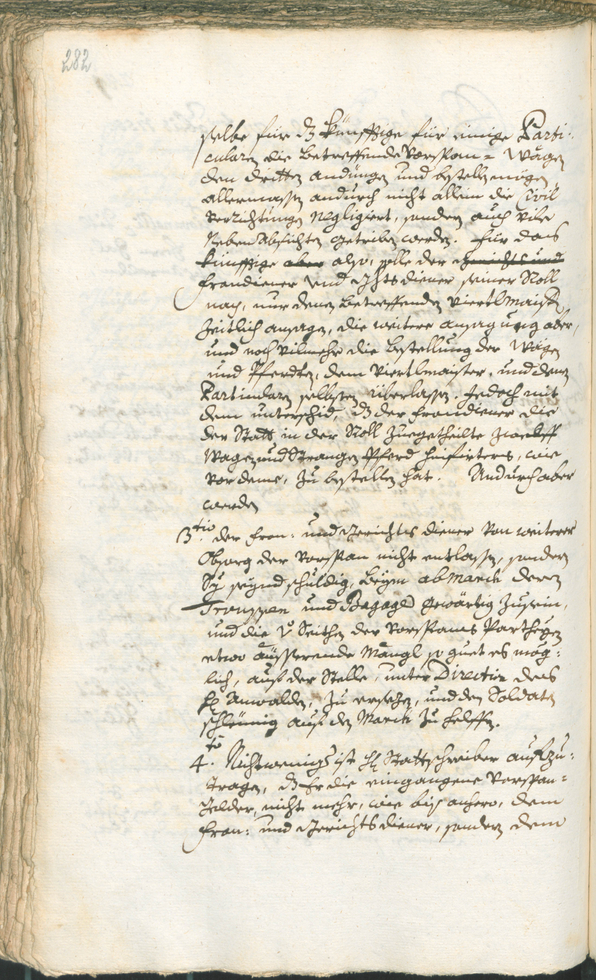 282
selbe für dz künfftige für einige Parti-
cularen die betreffende Vorspan- Wägen
den dritten andingen und bestellen mögen
allermassen andurch nicht allein die Civil
Verrichtungen Negligiert, sondern auch vile
Nebenabsichten getriben werden. Für das
künfftige aber also, solle der Gerichts und
Frondiener und Grichtsdiener seiner Roll
nach, nur denen betreffenden Viertlmaistern
Zeitlich ansagen, die weitere ansagung aber,
und noch vilmehr die bestellung der Wägen
und Pferdten, dem Viertlmaister, und denen
Particularen selbsten überlassen. Jedoch mit
dem unterschid, dz der Frondiener die
der Statt in der Roll Zuegetheilte
Wagen und Stangen Pferd hinfürters, wie
vordeme, Zu bestellen hat. Andurch aber
werden
3tio der Fron- und Gerichts diener von weiterer
Obsorg der Vorspan nicht entlassen, sondern
Sy seynd schuldig, beym abmarch deren
Trouppen und Bagage gewärtig Zusein,
und die Seithen der Vorspanns Partheyen
etwo äusserende Mängl so guet es mög-
lich, auf der Stelle, unter Direction des
H. Anwalden, Zu ersezen, und den Soldaten
schleinig auf den March Zu helffen.
4to Nichtweniger ist H. Stattschreiber aufzu-
tragen, dz Er die eingangene Vorspan-
gelder, nicht mehr, wie bis anhero, dem
Fron- und Gerichtsdiener, sondern dem